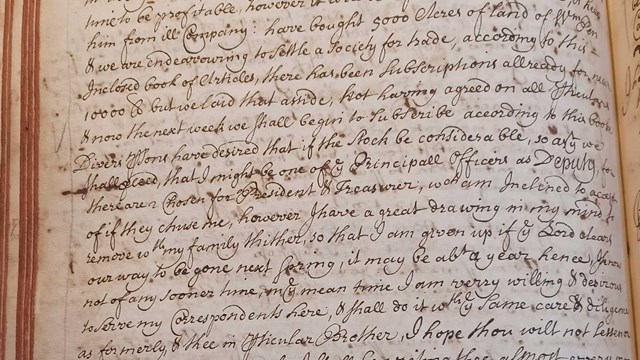 time to be profitable, however it
him from ill Company: have bought 5000 Acres of land of Wm Pen
& we are endeavouring to Settle a Society for trade, according to this
Inclosed book of Articles, there has been Subscriptions allready for near
10000 £ but we laid that asside, not having agreed on all pticulars
& now the next week we shall begin to Subscribe according to this book
Divers psons have desired that if the Stock be considerable, so as yt we
shall pceed, that I might be one of ye Principall Officers as Deputy, for
there are 2 chosen for President & Treasurer, wch am Inclined to accept
of if they chuse me, however I have a great drawing in my mind to
remove wth my family thither, so that I am given up if ye Lord clears
our way to be gone next Spring, it may be abt a year hence, I know
not of any sooner time, in ye mean time I am verry willing & desirous
to serve my Correspondents here, & shall do it wth ye Same care & diligence
as formerly & thee in pticular Brother, I hope thou wilt not Lessen